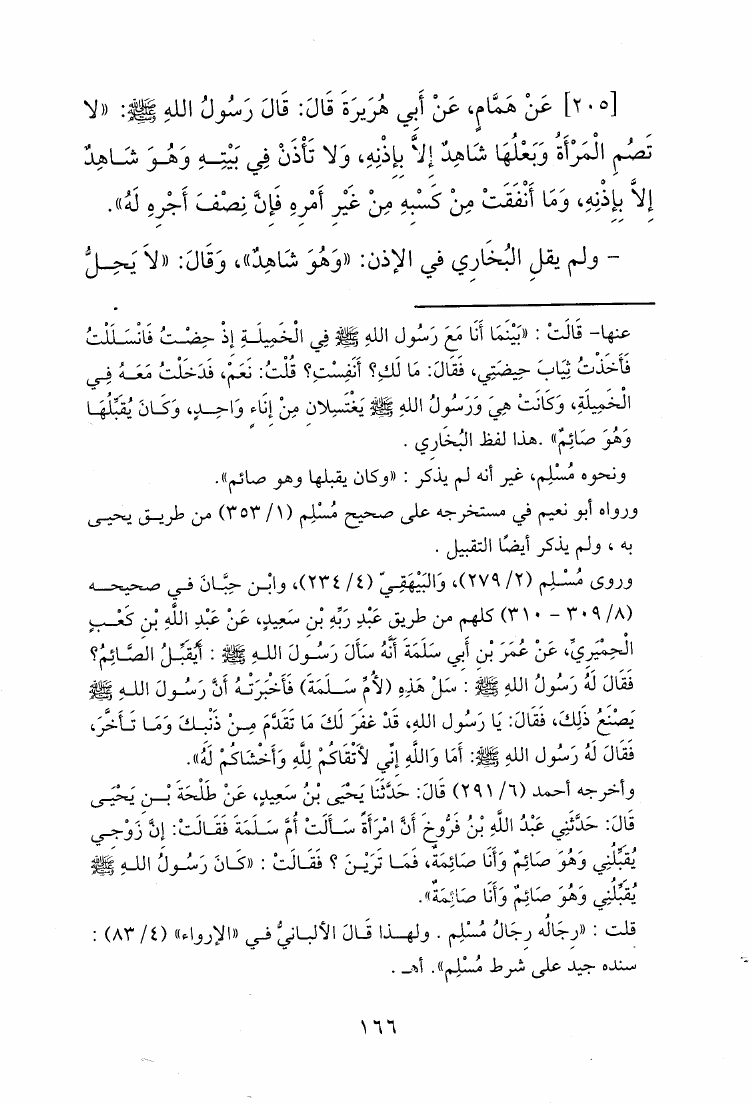 [٢٠٥] عَنْ هَمَّامٍ، عَنْ أَبِي هُرَيرَةَ قَالَ: قَالَ رَسُولُ اللهِ ﷺ: «لا
تَصُمِ الْمَرْأَةُ وَبَعْلُهَا شَاهِدٌ إِلاَّ بِإِذْنِهِ، وَلا تَأْذَنْ فِي بَيْتِهِ وَهُوَ شَاهِدٌ
إِلاَّ بِإِذْنِهِ، وَمَا أَنْفَقَتْ مِنْ كَسْبِهِ مِنْ غَيْرِ أَمْرِهِ فَإِنَّ نِصْفَ أَجْرِهِ لَهُ».
- ولم يقلِ البُخَاري في الإذن: «وَهُوَ شَاهِدٌ»، وَقَالَ: «لاَ يَحِلُّ
عنها- قَالَتْ : «بَيْنَمَا أَنَا مَعَ رَسُولِ اللهِ ﷺ فِي الْخَمِيلَةِ إِذْ حِضْتُ فَانْسَلَلْتُ
فَأَخَذْتُ ثِيَابَ حِيضَتِي، فَقَالَ: مَا لَكِ؟ أَنَفِسْتِ؟ قُلْتُ: نَعَمْ، فَدَخَلْتُ مَعَهُ فِي
الْخَمِيلَةِ، وَكَانَتْ هِيَ وَرَسُولُ اللهِ ﷺ يَغْتَسِلانِ مِنْ إِنَاءٍ وَاحِدٍ، وَكَانَ يُقَبِّلُهَا
وَهُوَ صَائِمٌ» .هذا لفظ البُخَاري .
ونحوه مُسْلِم، غير أنه لم يذكر : «وكان يقبلها وهو صائم».
ورواه أبو نعيم في مستخرجه على صحيح مُسْلِم (١/ ٣٥٣) من طريق يحيى
به ، ولم يذكر أيضًا التقبيل .
وروى مُسْلِم (٢/ ٢٧٩)، وَالبَيْهَقِيّ (٤/ ٢٣٤)، وابْن حِبَّانَ في صحيحه
(٨/ ٣٠٩ - ٣١٠) كلهم من طريق عَبْدِ رَبِّهِ بْنِ سَعِيدٍ، عَنْ عَبْدِ اللَّهِ بْنِ كَعْبٍ
الْحِمْيَرِيِّ، عَنْ عُمَرَ بْنِ أَبِي سَلَمَةَ أَنَّهُ سَأَلَ رَسُولَ اللهِ ﷺ : أَيُقَبِّلُ الصَّائِمُ؟
فَقَالَ لَهُ رَسُولُ اللهِ ﷺ : سَلْ هَذِهِ (لأُمِّ سَلَمَةَ) فَأَخْبَرَتْهُ أَنَّ رَسُولَ اللهِ ﷺ
يَصْنَعُ ذَلِكَ، فَقَالَ: يَا رَسُولَ اللهِ، قَدْ غَفَرَ لَكَ مَا تَقَدَّمَ مِنْ ذَنْبِكَ وَمَا تَأَخَّرَ،
فَقَالَ لَهُ رَسُولُ اللهِ ﷺ: أَمَا وَاللَّهِ إِنِّي لأَتْقَاكُمْ لِلَّهِ وَأَخْشَاكُمْ لَهُ».
وأخرجه أحمد (٦/ ٢٩١) قَالَ: حَدَّثَنَا يَحْيَى بْنُ سَعِيدٍ، عَنْ طَلْحَةَ بْنِ يَحْيَى
قَالَ: حَدَّثَنِي عَبْدُ اللَّهِ بْنُ فَرُّوخَ أَنَّ امْرَأَةً سَأَلَتْ أُمَّ سَلَمَةَ فَقَالَتْ: إِنَّ زَوْجِي
يُقَبِّلُنِي وَهُوَ صَائِمٌ وَأَنَا صَائِمَةٌ، فَمَا تَرَيْنَ ؟ فَقَالَتْ : «كَانَ رَسُولُ اللهِ ﷺ
يُقَبِّلُنِي وَهُوَ صَائِمٌ وَأَنَا صَائِمَةٌ».
قلت : «رِجَالُه رِجَالُ مُسْلِم . ولهذا قَالَ الألبانيُّ في «الإرواء» (٤/ ٨٣) :
سنده جيد على شرط مُسْلِم». أهـ .
١٦٦